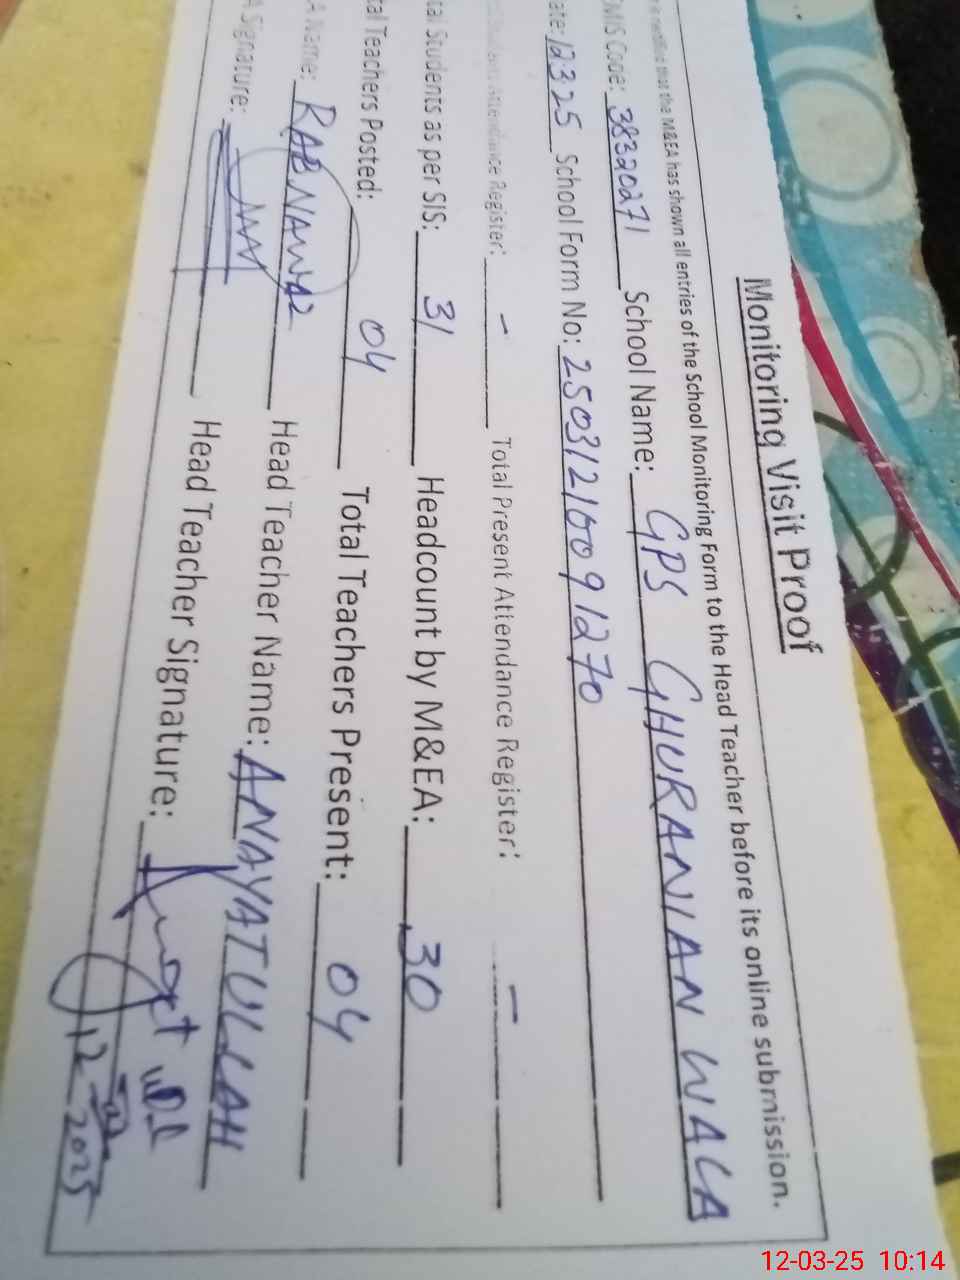 Monitoring Visit Proof
that the M&EA has shown all entries of the School Monitoring Form to the Head Teacher before its online submission.
MIS Code: 38320271 School Name: GPS GHURANIAN WALA
ate: 12325 School Form No: 25031210091270
Attendance Register: - Total Present Attendance Register: -
tal Students as per SIS: 31 Headcount by M&EA: 30
tal Teachers Posted: 04 Total Teachers Present: 04
A Name: RAB NAWAZ Head Teacher Name: ANAYATULLAH
A Signature: Head Teacher Signature:
12 2025
12-03-25 10:14